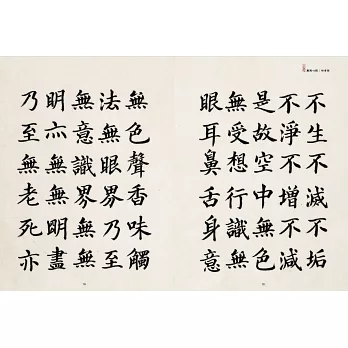 不生不滅不垢
不淨不增不減
是故空中無色
無受想行識無
眼耳鼻舌身意
無色聲香味觸
法無眼界乃至
無意識界無無
明亦無無明盡
乃至無老死亦